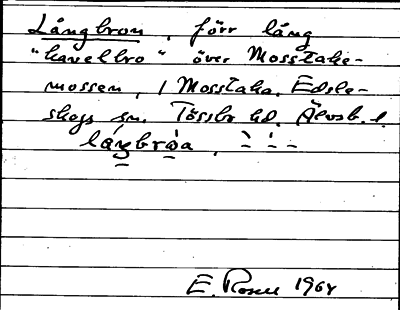 Långbron, förr lång
"kavelbro" över Mosstake-
mossen, i Mosstaka, Edsle-
skogs sn. Tössbo hd. Älvsb. l.
lángbròa
E. Rosell 1968